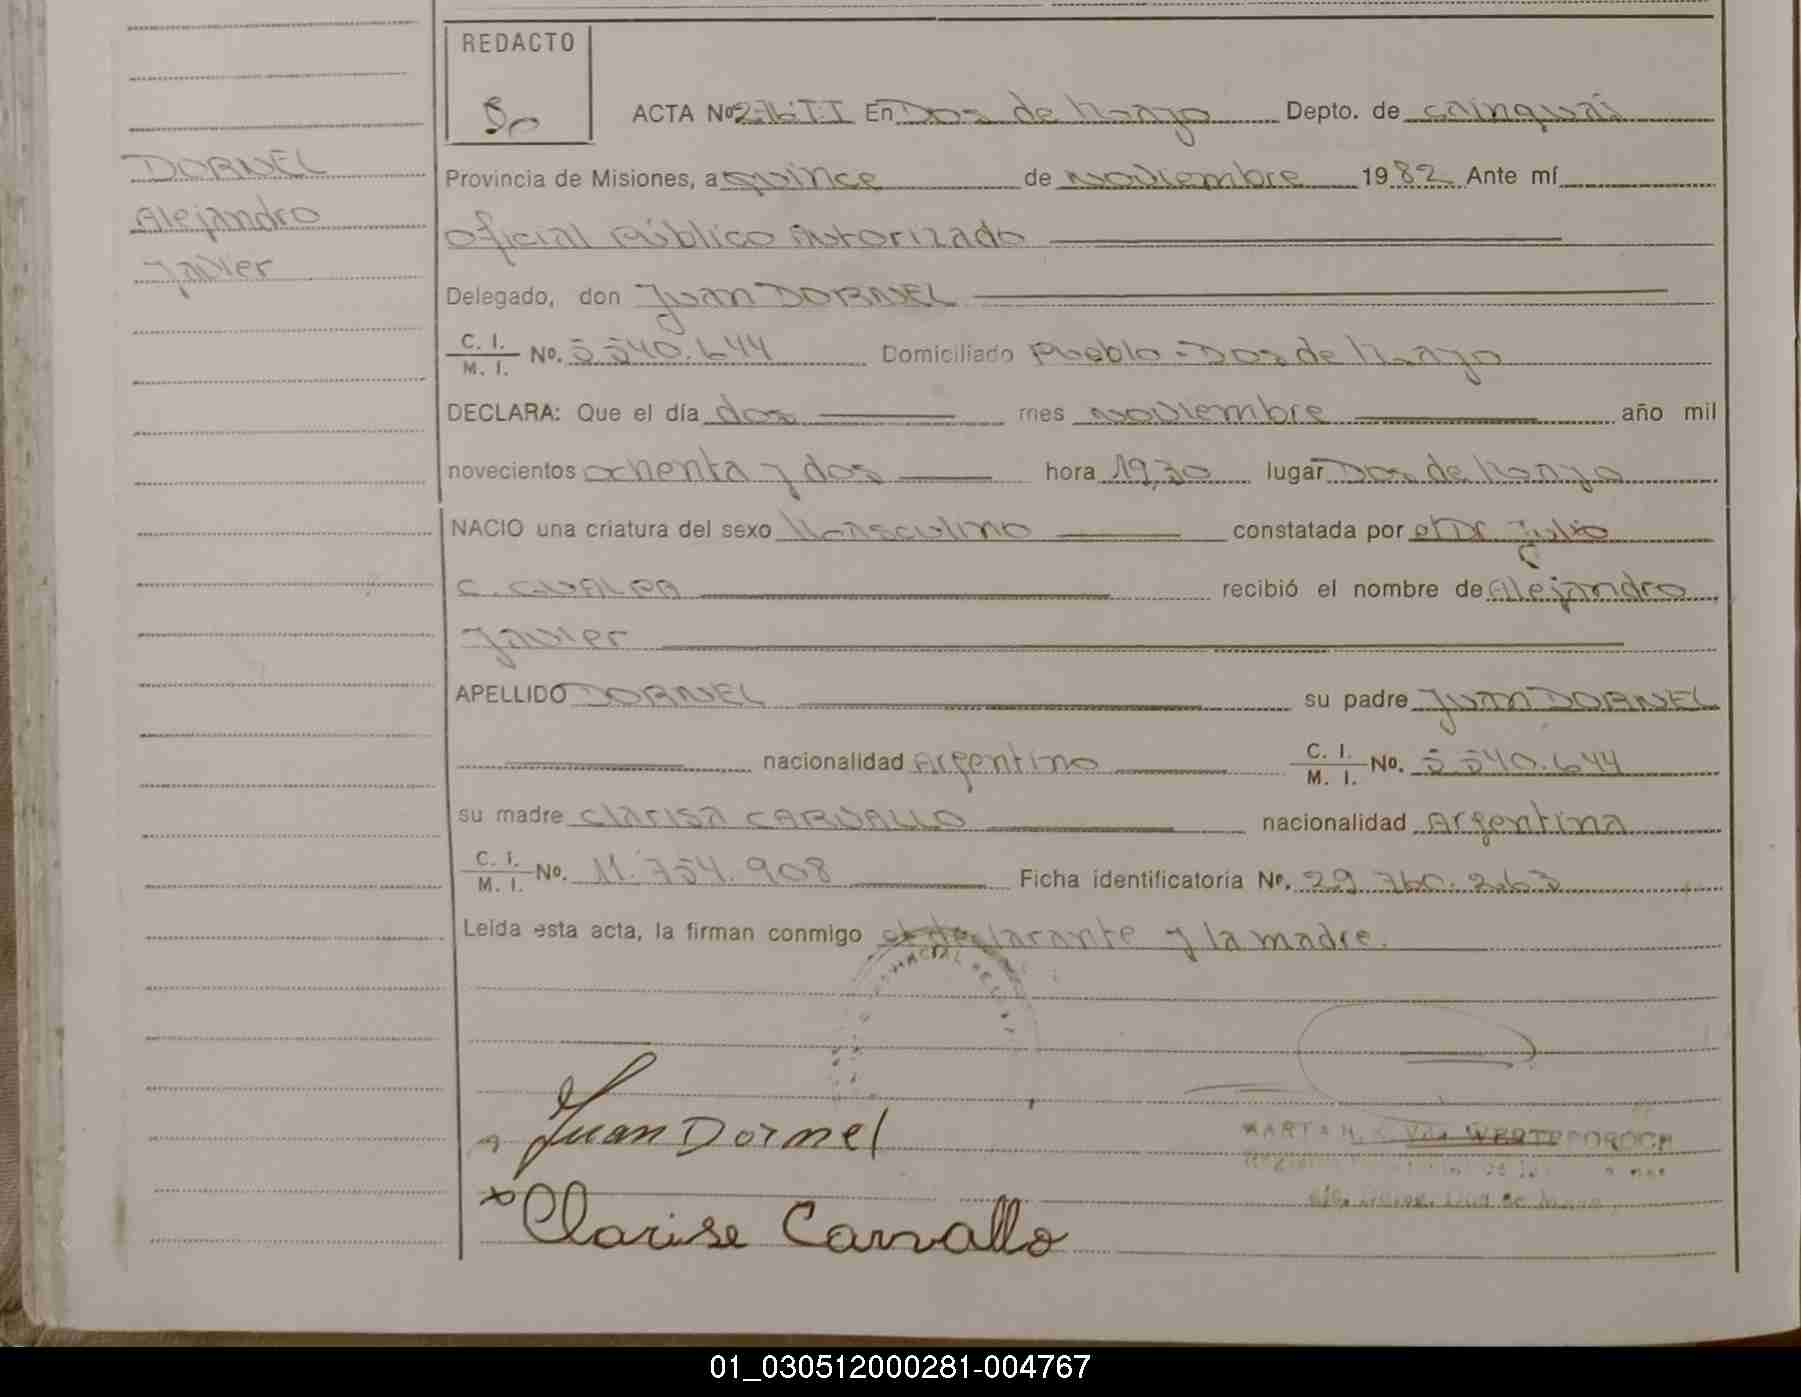 REDACTO
So
ACTA Nº 276 TI En Dos de Mayo Depto. de Cainguás
DORNEL
Alejandro
Javier
Provincia de Misiones, a quince de noviembre 1982 Ante mí
oficial Público Autorizado
Delegado, don Juan DORNEL
C. I. / M. I. No. 5.540.644 Domiciliado Pueblo - Dos de Mayo
DECLARA: Que el día dos mes noviembre año mil
novecientos ochenta y dos hora 19,30 lugar Dos de Mayo
NACIO una criatura del sexo Masculino constatada por el Dr Julio
C. recibió el nombre de Alejandro
Javier
APELLIDO DORNEL su padre Juan DORNEL
nacionalidad Argentino C. I. / M. I. No. 5.540.644
su madre Clarisa CARVALLO nacionalidad Argentina
C. I. / M. I. No. 11.754.908 Ficha identificatoria No. 29.760.263
Leída esta acta, la firman conmigo el declarante y la madre.
Juan Dornel
x Clarise Carvallo
01_030512000281-004767